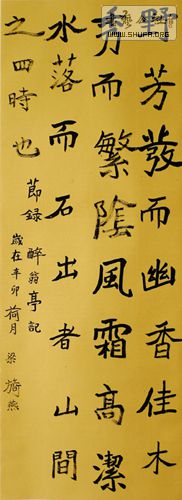 野芳發而幽香佳木
秀而繁陰風霜高潔
水落而石出者山間
之四時也
節錄醉翁亭記
歲在辛卯荷月 梁
WWW.SHUFA.ORG